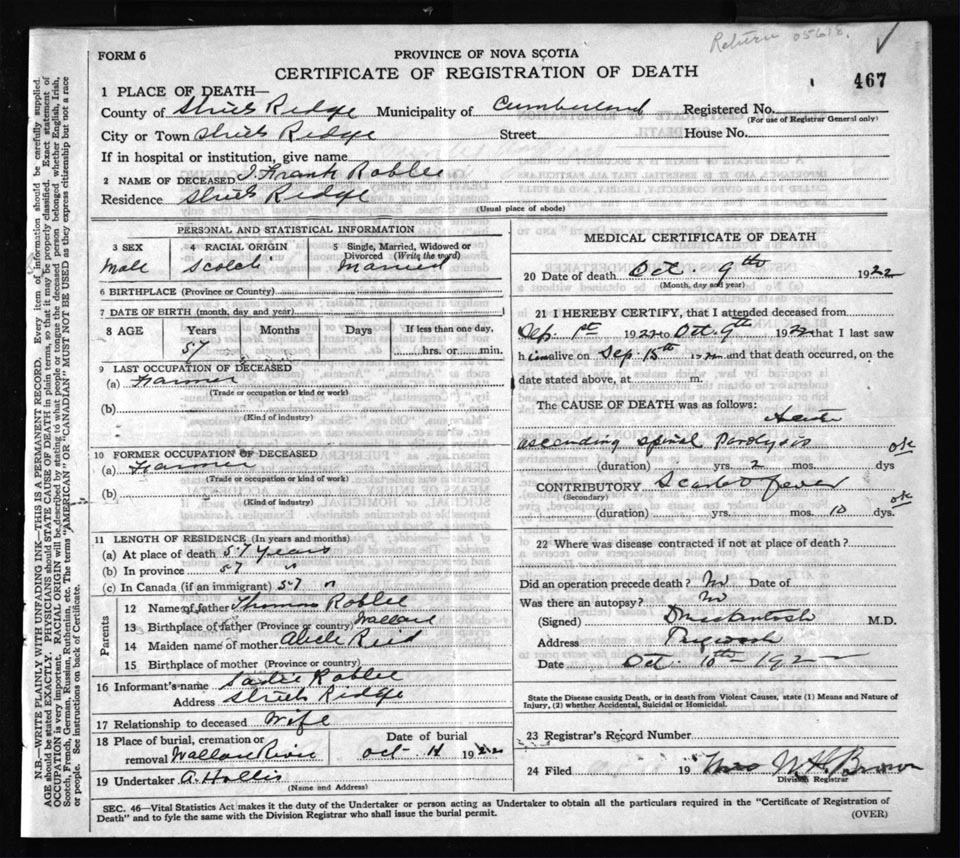 Return 05618.
FORM 6
PROVINCE OF NOVA SCOTIA
CERTIFICATE OF REGISTRATION OF DEATH
467
1 PLACE OF DEATH—
County of Ridge Municipality of Cumberland Registered No.
(For use of Registrar General only)
City or Town Ridge Street House No.
If in hospital or institution, give name
2 NAME OF DECEASED J. Frank Roblee
Residence Ridge
(Usual place of abode)
PERSONAL AND STATISTICAL INFORMATION
3 SEX 4 RACIAL ORIGIN 5 Single, Married, Widowed or
Divorced (Write the word)
Male Scotch Married
6 BIRTHPLACE (Province or Country)
7 DATE OF BIRTH (month, day and year)
8 AGE Years Months Days If less than one day,
57 hrs. or min.
9 LAST OCCUPATION OF DECEASED
(a) Farmer
(Trade or occupation or kind or work)
(b)
(Kind of industry)
10 FORMER OCCUPATION OF DECEASED
(a) Farmer
(Trade or occupation or kind of work)
(b)
(Kind of industry)
11 LENGTH OF RESIDENCE (In years and months)
(a) At place of death 57 years
(b) In province 57 "
(c) In Canada (if an immigrant) 57 "
Parents
12 Name of father Thomas Roblee
13 Birthplace of father (Province or country) Wallace
14 Maiden name of mother Reid
15 Birthplace of mother (Province or country)
16 Informant's name Sadie Roblee
Address Ridge
17 Relationship to deceased Wife
18 Place of burial, cremation or Date of burial
removal Wallace River Oct 11 1922
19 Undertaker A. Hollis
(Name and Address)
MEDICAL CERTIFICATE OF DEATH
20 Date of death Oct. 9th 1922
(Month, day and year)
21 I HEREBY CERTIFY, that I attended deceased from
Sep. 1st 1922 to Oct. 9th 1922 that I last saw
him alive on Sep. 15th 1922 and that death occurred, on the
date stated above, at m.
The CAUSE OF DEATH was as follows:
Acute
ascending spinal Paralysis
(duration) yrs. 2 mos. dys
ok
CONTRIBUTORY Scarlet fever
(Secondary)
(duration) yrs. mos. 10 dys.
ok
22 Where was disease contracted if not at place of death?
Did an operation precede death? No Date of
Was there an autopsy? No
(Signed) M.D.
Address Pugwash
Date Oct. 10th 1922
State the Disease causing Death, or in death from Violent Causes, state (1) Means and Nature of
Injury, (2) whether Accidental, Suicidal or Homicidal.
23 Registrar's Record Number
24 Filed 19 Mrs Brown
Division Registrar
SEC. 46—Vital Statistics Act makes it the duty of the Undertaker or person acting as Undertaker to obtain all the particulars required in the "Certificate of Registration of
Death" and to fyle the same with the Division Registrar who shall issue the burial permit.
(OVER)
N.B.—WRITE PLAINLY WITH UNFADING INK—THIS IS A PERMANENT RECORD. Every item of information should be carefully supplied.
AGE should be stated EXACTLY. PHYSICIANS should STATE CAUSE OF DEATH in plain terms, so that it may be properly classified. Exact statement of
OCCUPATION is very important. RACIAL ORIGIN will be described by stating to what people or tongue the deceased person belonged whether English, Irish,
Scotch, French, German, Russian, Ruthenian, etc. The terms "AMERICAN" OR "CANADIAN" MUST NOT BE USED as they express citizenship but not a race
or people. See instructions on back of Certificate.